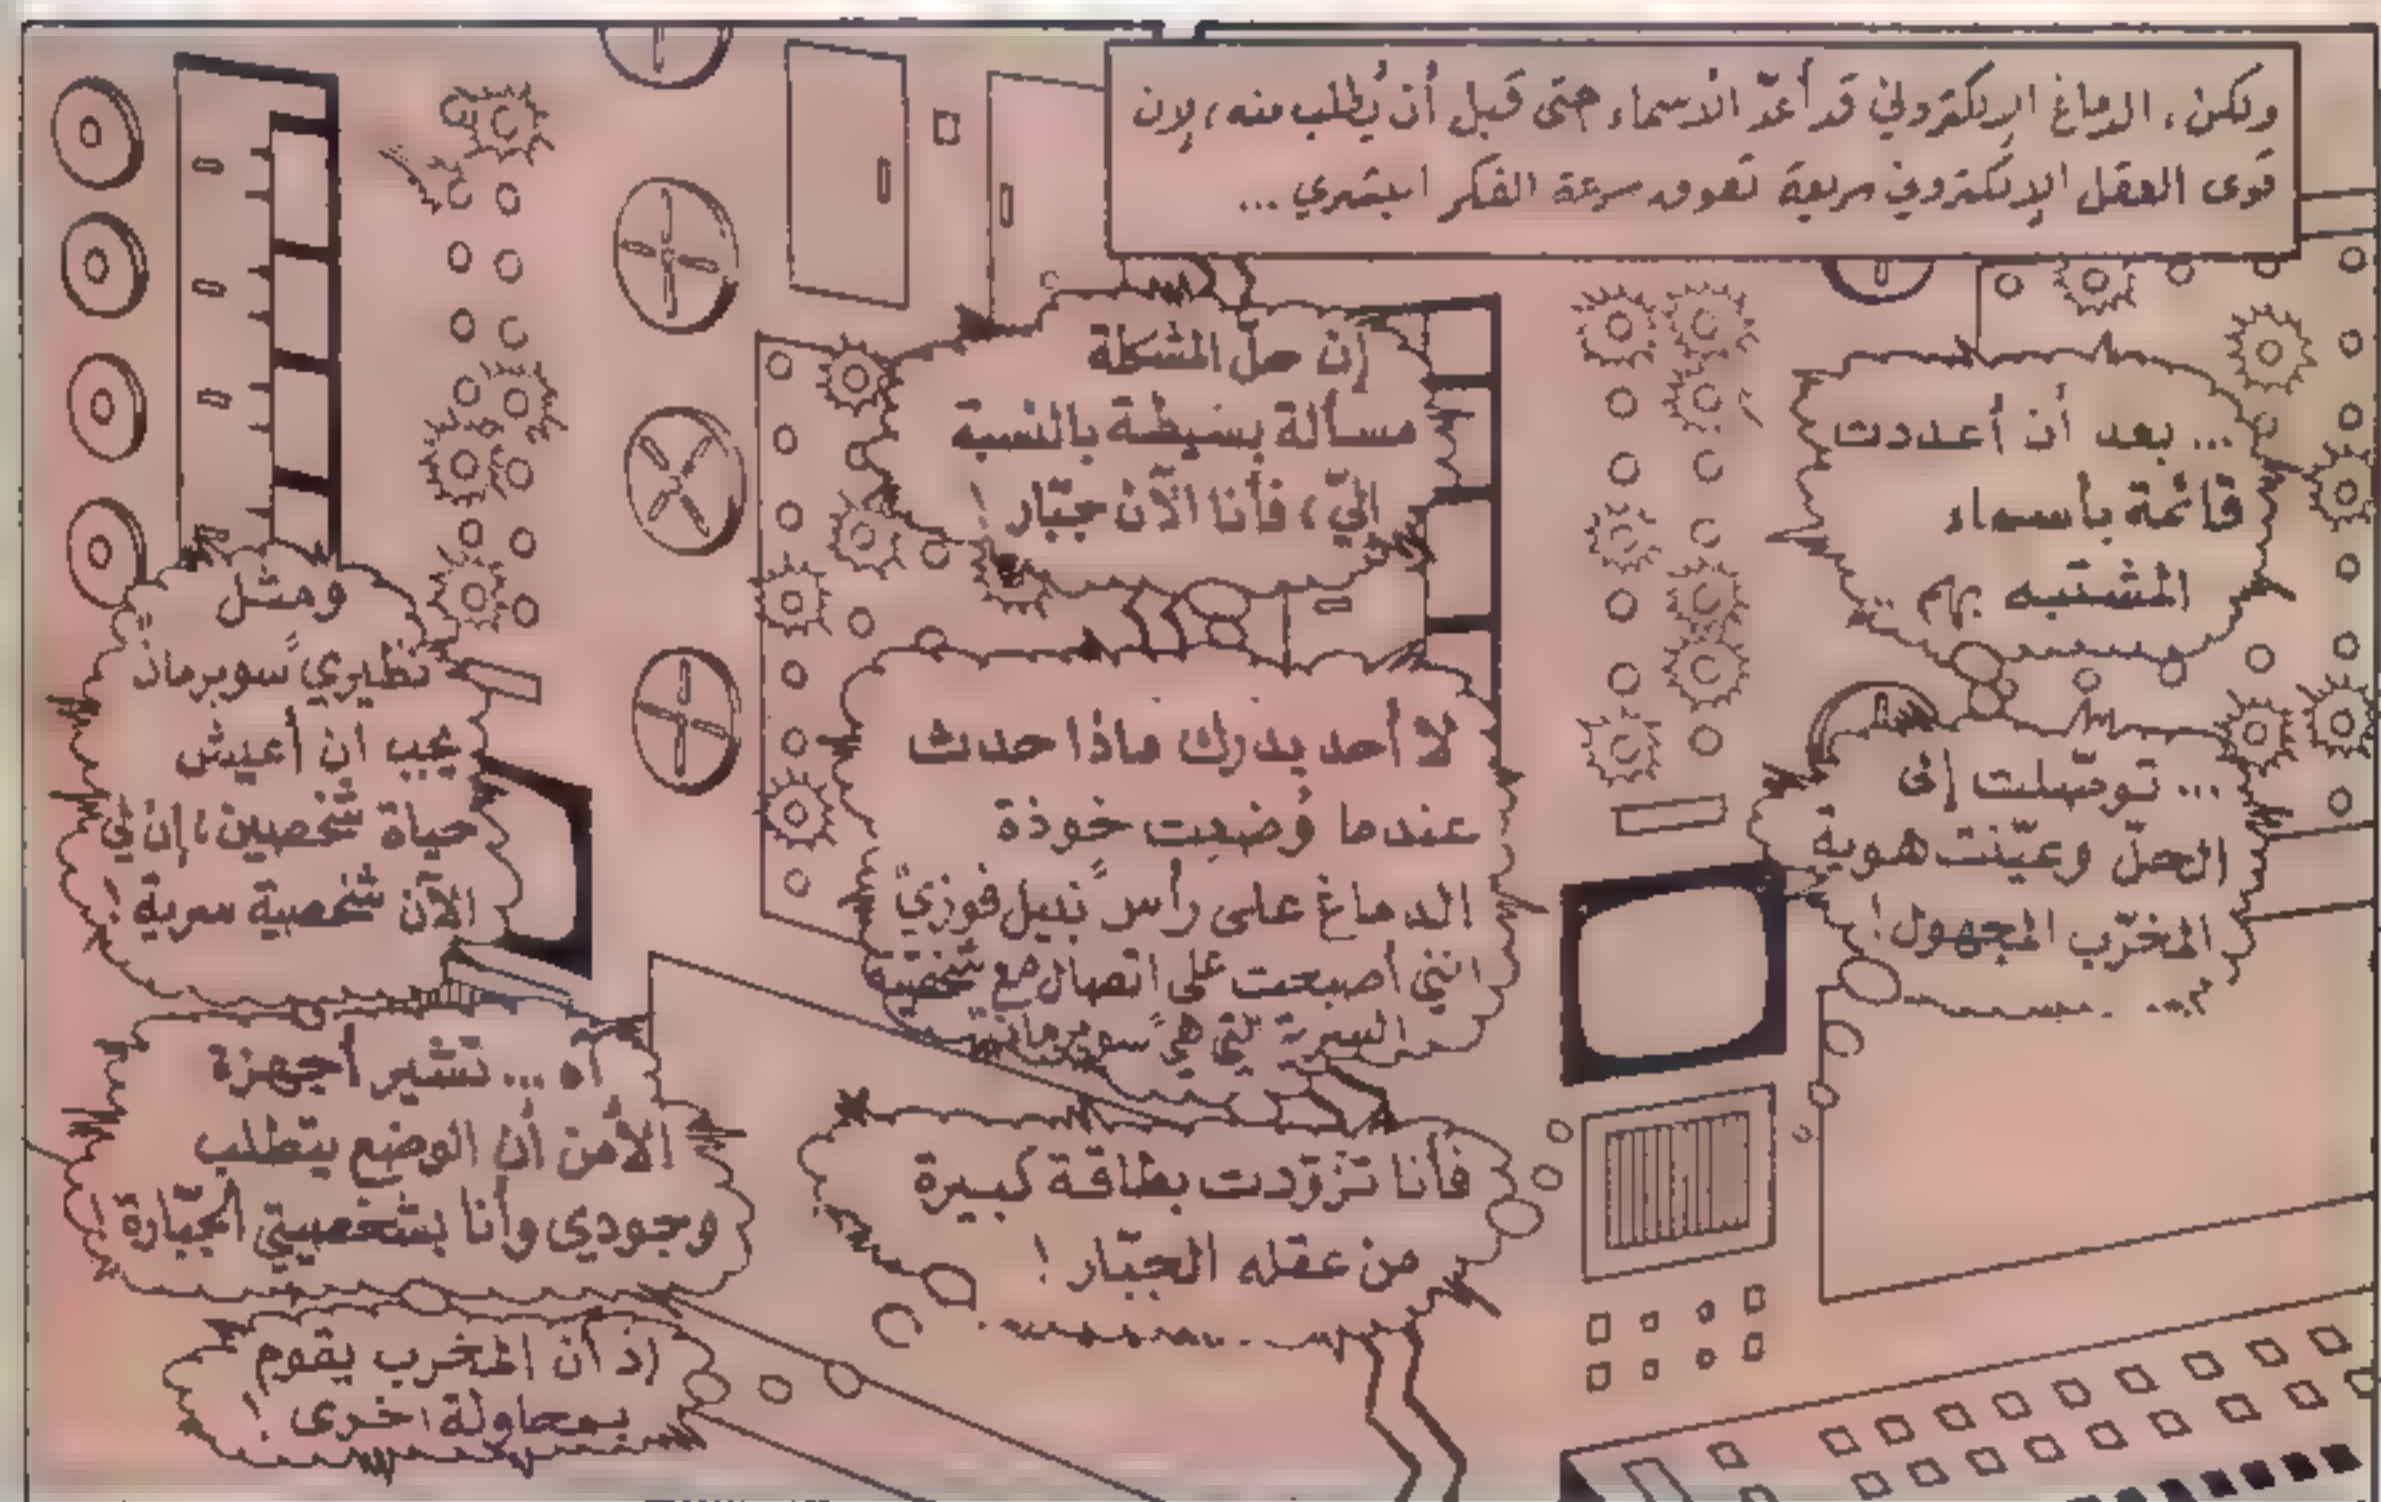 ولكن، الدماغ الإلكتروني قد أعدّ الأسماء حتى قبل أن يُطلب منه، لأن
قوى العقل الإلكتروني سريعة تفوق سرعة الفكر البشري...
... بعد أن أعددت
قائمة بأسماء
المشتبه بهم ...
... توصّلت إلى
الحلّ وعيّنت هوية
المخرّب المجهول!
إن حلّ المشكلة
مسألة بسيطة بالنسبة
إليّ، فأنا الآن جبّار!
لا أحد يدرك ماذا حدث
عندما وُضعت خوذة
الدماغ على رأس "نبيل فوزي"
انني أصبحت على اتصال مع شخصيته
السرية التي هي "سوبرمان"
فأنا تزوّدت بطاقة كبيرة
من عقله الجبّار!
ومثل
نظيري "سوبرمان"
يجب ان أعيش
حياة شخصين، إن لي
الآن شخصية سرية!
آه ... تشير أجهزة
الأمن أن الوضع يتطلب
وجودي وأنا بشخصيتي الجبّارة!
إذ أن المخرب يقوم
بمحاولة اخرى!